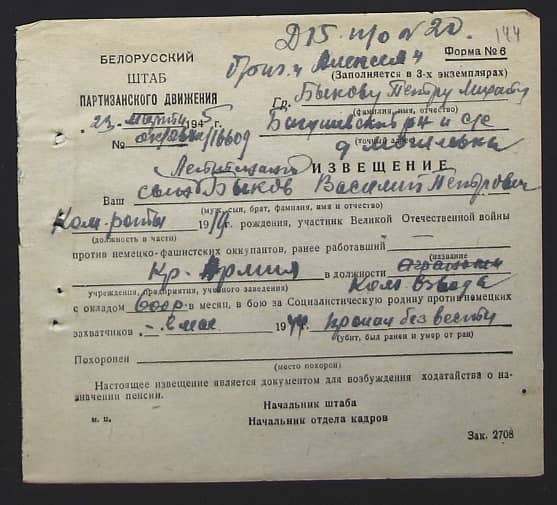 Д15. п/о N 20. 144
БЕЛОРУССКИЙ
ШТАБ
ПАРТИЗАНСКОГО ДВИЖЕНИЯ
Форма № 6
Бриг. "Алексея"
(Заполняется в 3-х экземплярах)
Гр. Быкову Петру
(фамилия, имя, отчество)
„23" марта 1945 г.
Богушевский р-н
(точный адрес)
№ /16609
д.
ИЗВЕЩЕНИЕ
Ваш сын Быков Василий Петрович
(муж, сын, брат, фамилия, имя и отчество)
Ком. роты 1914 рождения, участник Великой Отечественной войны
(должность в части)
против немецко-фашистских оккупантов, ранее работавший
(название
Кр. Армия в должности
учреждения, предприятия, учебного заведения)
Ком взвода
с окладом 600 р. в месяц, в бою за Социалистическую родину против немецких
захватчиков „-" в мае 1944 г. пропал без вести
(убит, был ранен и умер от ран)
Похоронен
(место похорон)
Настоящее извещение является документом для возбуждения ходатайства о на-
значении пенсии.
Начальник штаба
м. п.
Начальник отдела кадров
Зак. 2708